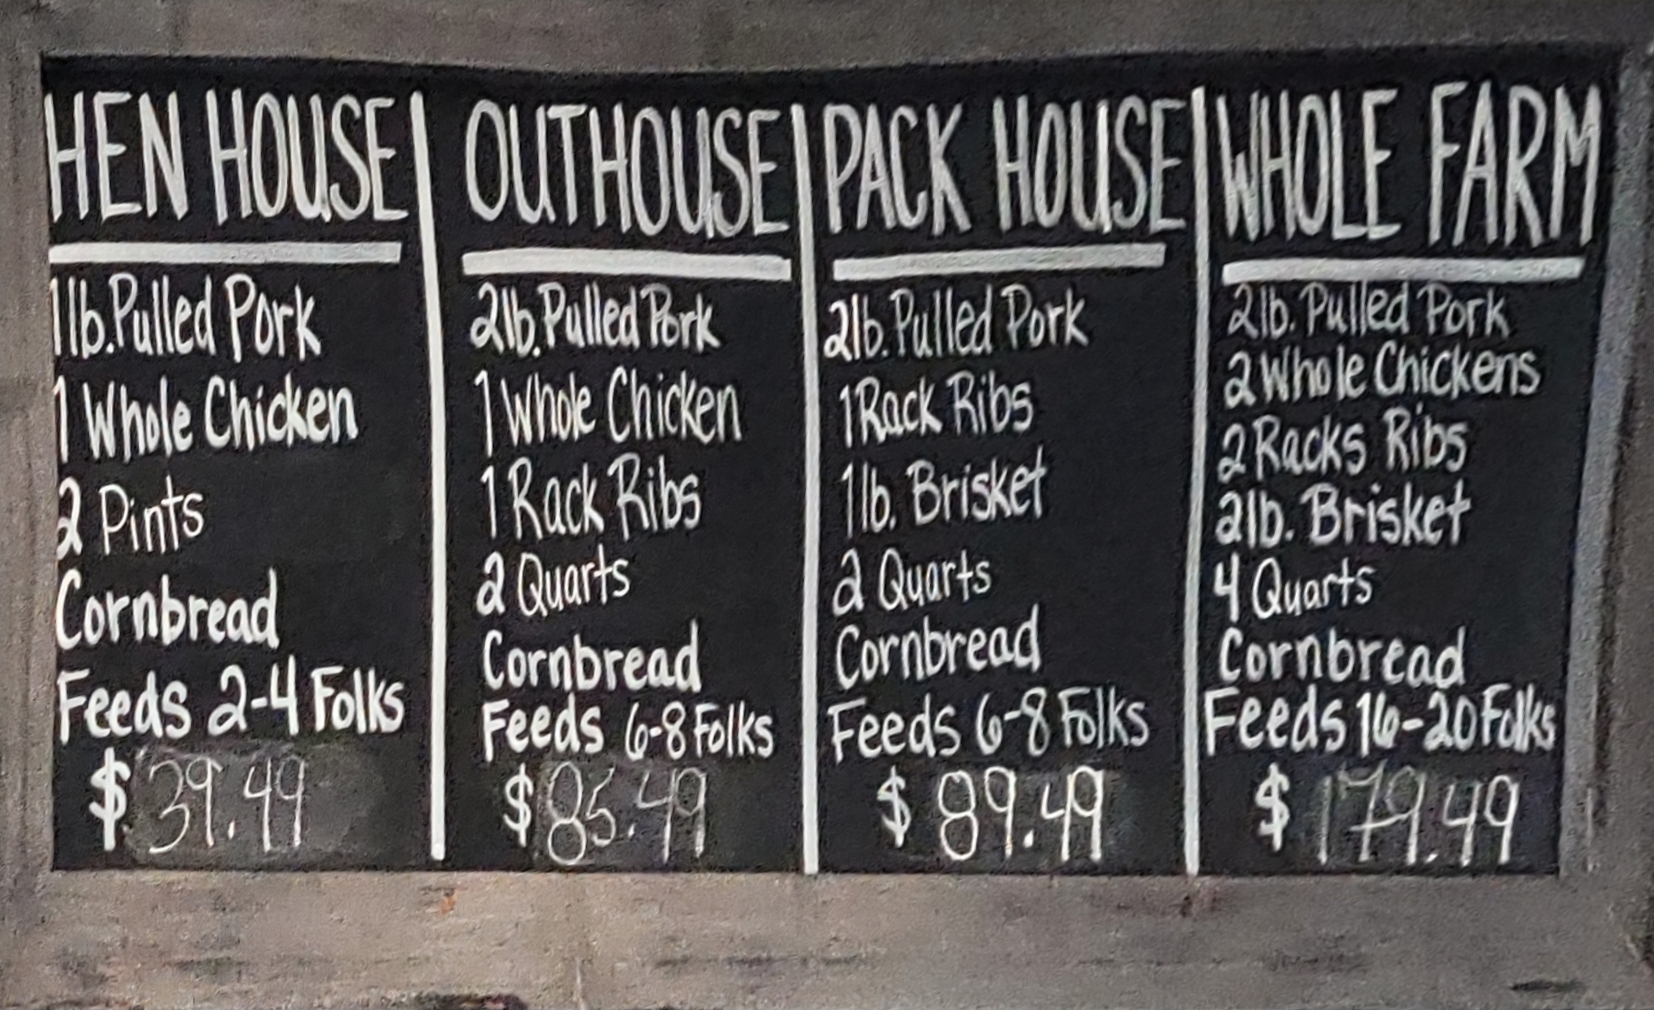 HEN HOUSE
1lb. Pulled Pork
1 Whole Chicken
2 Pints
Cornbread
Feeds 2-4 Folks
$39.49
OUTHOUSE
2lb. Pulled Pork
1 Whole Chicken
1 Rack Ribs
2 Quarts
Cornbread
Feeds 6-8 Folks
$85.49
PACK HOUSE
2lb. Pulled Pork
1 Rack Ribs
1lb. Brisket
2 Quarts
Cornbread
Feeds 6-8 Folks
$89.49
WHOLE FARM
2lb. Pulled Pork
2 Whole Chickens
2 Racks Ribs
2lb. Brisket
4 Quarts
Cornbread
Feeds 16-20 Folks
$179.49